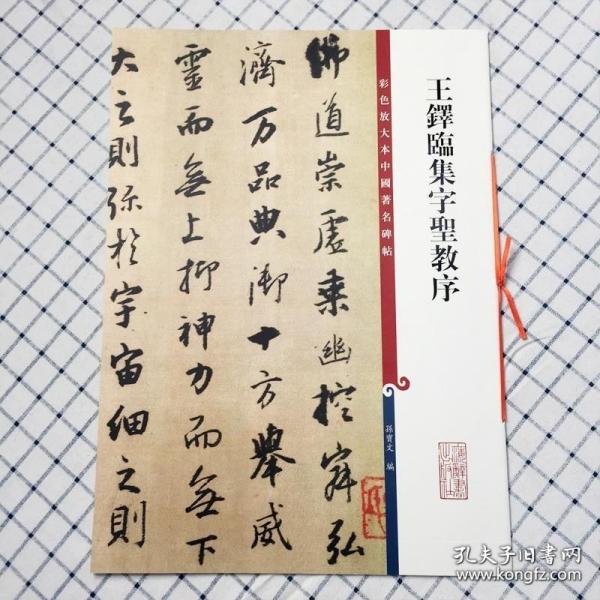 王鐸臨集字聖教序
彩色放大本中國著名碑帖
孫寶文 編
佛道崇虛乘幽控寂弘
濟万品典御十方舉威
靈而無上抑神力而無下
大之則弥於宇宙細之則
孔夫子旧书网
www.kongfz.com